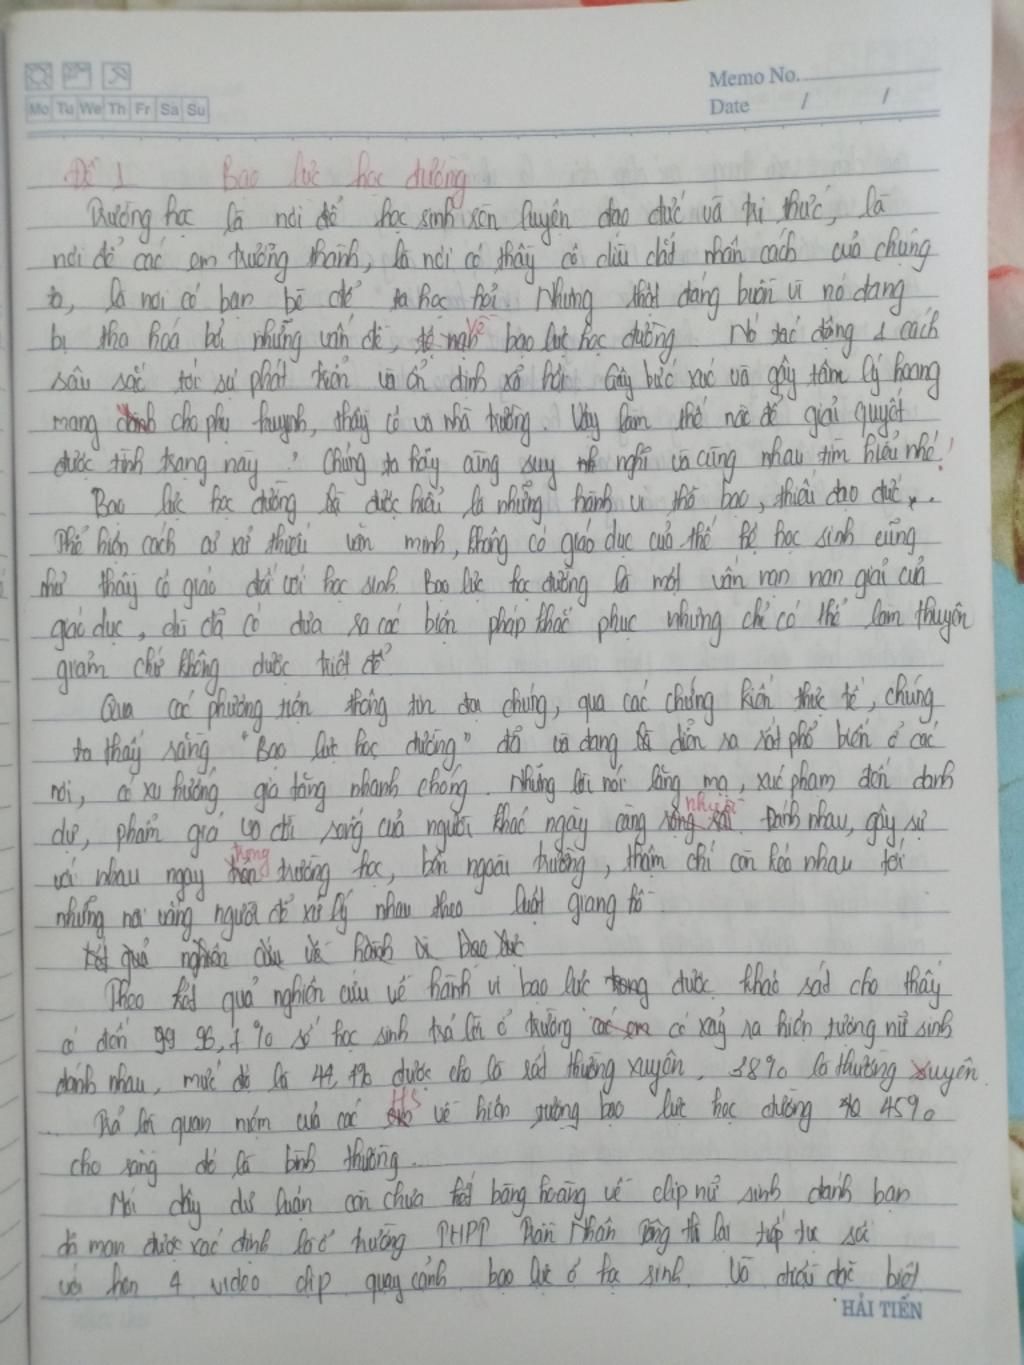 Memo No.
Mo Tu We Th Fr Sa Su
Date / /
Đề 1 Bạo lực học đường
Trường học là nơi để học sinh rèn luyện đạo đức và tri thức, là
nơi để các em trưởng thành, là nơi có thầy cô dìu dắt nhân cách của chúng
ta, là nơi có bạn bè để ta học hỏi. Nhưng thật đáng buồn vì nó đang
bị tha hoá bởi những vấn đề, về bạo lực học đường. Nó tác động 1 cách
sâu sắc tới sự phát triển và ổn định xã hội. Gây bức xúc và gây tâm lý hoang
mang cho phụ huynh, thầy cô và nhà trường. Vậy làm thế nào để giải quyết
được tình trạng này? Chúng ta hãy cùng suy nghĩ và cùng nhau tìm hiểu nhé!
Bạo lực học đường được hiểu là những hành vi thô bạo, thiếu đạo đức,..
Thể hiện cách cư xử thiếu văn minh, không có giáo dục của thế hệ học sinh cũng
như thầy cô giáo đối với học sinh. Bạo lực học đường là một vấn nạn nan giải của
giáo dục, dù đã có đưa ra các biện pháp khắc phục nhưng chỉ có thể làm thuyên
giảm chứ không được triệt để
Qua các phương tiện thông tin đại chúng, qua các chứng kiến thực tế, chúng
ta thấy rằng "Bạo lực học đường" đã và đang diễn ra rất phổ biến ở các
nơi, có xu hướng gia tăng nhanh chóng. Những lời nói lăng mạ, xúc phạm đến danh
dự, phẩm giá đời sống của người khác ngày càng nhiều. Đánh nhau, gây sự
với nhau ngay trong trường học, bên ngoài trường, thậm chí còn kéo nhau tới
những nơi vắng người để xử lý nhau theo luật giang hồ
Kết quả nghiên cứu về hành vi bạo lực
Theo kết quả nghiên cứu về hành vi bạo lực được khảo sát cho thấy
có đến 96,7% số học sinh trả lời ở trường có xảy ra hiện tượng nữ sinh
đánh nhau, mức độ là 44,7% được cho là rất thường xuyên, 38% là thường xuyên.
Trả lời quan niệm của các HS về hiện tượng bạo lực học đường 45%
cho rằng đó là bình thường.
Mới đây dư luận còn chưa hết bàng hoàng về clip nữ sinh đánh bạn
dã man được xác định là ở trường THPT Trần Nhân Tông thì lại tiếp tục
với hơn 4 video clip quay cảnh bạo lực ở sinh.
HẢI TIẾN